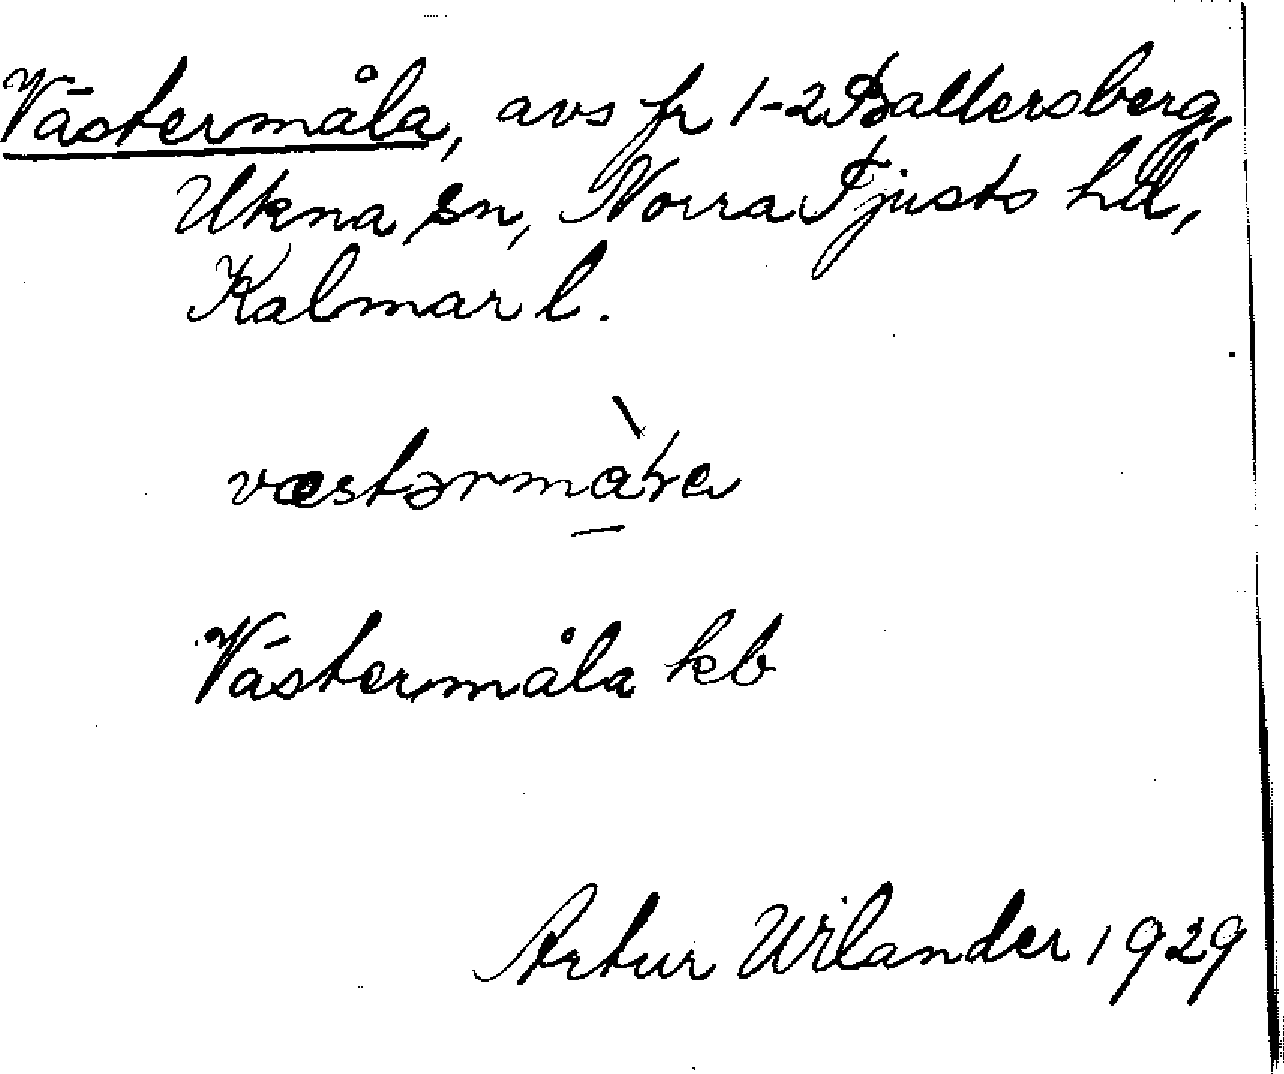 Västermåla, avs fr 1-2 Ballersberg,
Ukna sn, Norra Tjusts hd,
Kalmar l.
Västermåla kb
Artur Wilander 1929